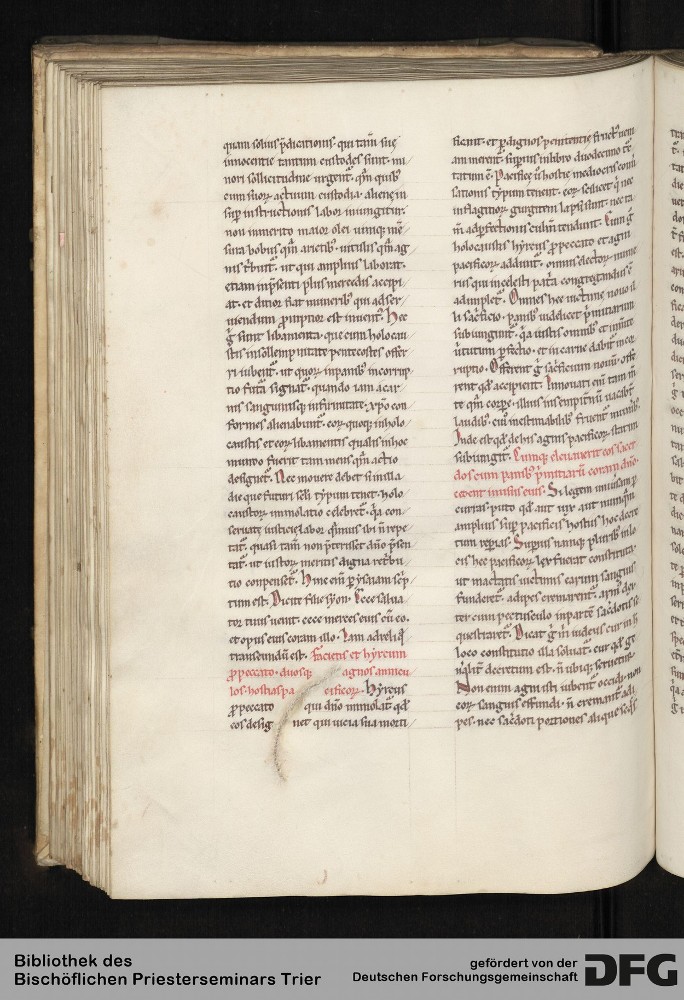 quam solius p̄dicationis. qui tam̄ suę
innocentie tantum custodes sunt. mi/
nori sollicitudine urgent᷑. qm̄ quib᷒
cum suoꝝ actuum custodia alienę in
sup̄ instructionis labor iniungitur.
non inmerito maior olei uinique men
sura bobus quā arietib᷒. uitulis quā ag
nis t̄buit᷑. ut qui amplius laborat.
etiam inp̄senti plus mercedis accipi
at. et ditior fiat munerib᷒ qui ad ser/
uiendum p̄mptior est inuent᷒. Hec
ḡ sunt libamenta. que cum holocau/
stis insollempnitate pentecostes offer
ri iubent᷑. ut quoꝝ inpanib᷒ incorrup
tio fut̄a signat᷑. quando iam a car
nis sanguinisque infirmitate. xp̄o con/
formes alienabunt᷑. eoꝝ quoque inholo
caustis et eoꝝ libamentis qualis inhoc
mundo fuerit tam mens quā actio
designet᷑. Nec mouere debet si milla
die que futuri scl̄i typum tenet. holo
caustoꝝ inmolatio celebret᷑. q̄a con
seruatę iusticię labor
tat᷑. quasi tam̄ non p̄terisset an̄o p̄sen
tat᷑. ut iustoꝝ meritis digna ret̄bu
tio conpenset᷑. Hinc eni᷒ p̄ ysaiam sc̄p
tum est. Dicite filię syon. Ecce salua
tor tuus uenit. ecce merces eius cū eo.
et opus eius coram illo. Iam ad reliq̄
transeundū est. Facietis et hyrcum
p̄ peccato. duosque agnos annicu
los hostias pa cificoꝝ. Hyrcus
p̄ peccato qui dn̄o inmolat᷑ qd̄
eos desig net qui uicia sua morti
ficant. et p̄ dignos penitentię fruct᷒ ueni
am merent᷑. superius in libro duodecimo t̄c
tatum ē. Pacificę ū hostię mediocris conū
sationis typum tenent. eoꝝ scilicet q̄ nec
in flagitioꝝ gurgitem lapsi sunt. nec ta
m̄ ad p̄fectionis culm̄ tendunt. Cum ḡ
holocaustis hyrcus p̄ peccato et agni
pacificoꝝ addunt᷑. omnis electoꝝ nume
rus qui in celesti pat̄a congregandus ē
adimplet᷑. Omnes hee uictimę nouo il
li sac̄ficio. panib᷒ uidelicet p̄mitiarum
subiungunt᷑. q̄a iustis omnib᷒ et uniūse
uirtutum p̄fectio. et in carne dabit᷑ incor
ruptio. Offerent ḡ sac̄ficium nouū. offe
rent qd̄ accipient. Innouati eni᷒ tam m̄
te qm̄ corpe. illius in semp̄itnū uacabt̄
laudib᷒. cui᷒ inestimabilib᷒ fruent᷑ munib᷒.
Inde est qd̄ de his agnis pacificoꝝ statim
subiungit᷑. Cumque eleuauerit eos sacer
dos cum panib᷒ p̄mitiarū coram dn̄o.
cedent in usus eius. Si legem
curras. puto qd̄ aut uix aut nunquā
amplius sup̄ pacificis hostiis hoc decre
tum rep̄ias. Superius nanque pluribus in lo
cis hec pacificoꝝ lex fuerat constituta.
ut mactatis uictimis earum sanguis
funderet᷑. adipes cremarent᷑. arm᷒ dex
ter cum pectusculo in partē sac̄dotis se
questraret᷑. Dicat ḡ m̄ iudeus cur in h̄
loco constitutio illa soluat᷑. cur qd̄ ge
n̄alit̄ decretum est. n̄ ubique seruetur.
Non enim agni isti iubent᷑ occidi. non
eoꝝ sanguis effundi. n̄ cremari adi
pes. nec sac̄doti portiones alique
Bibliothek des
Bischöflichen Priesterseminars Trier
gefördert von der
Deutschen Forschungsgemeinschaft
DFG